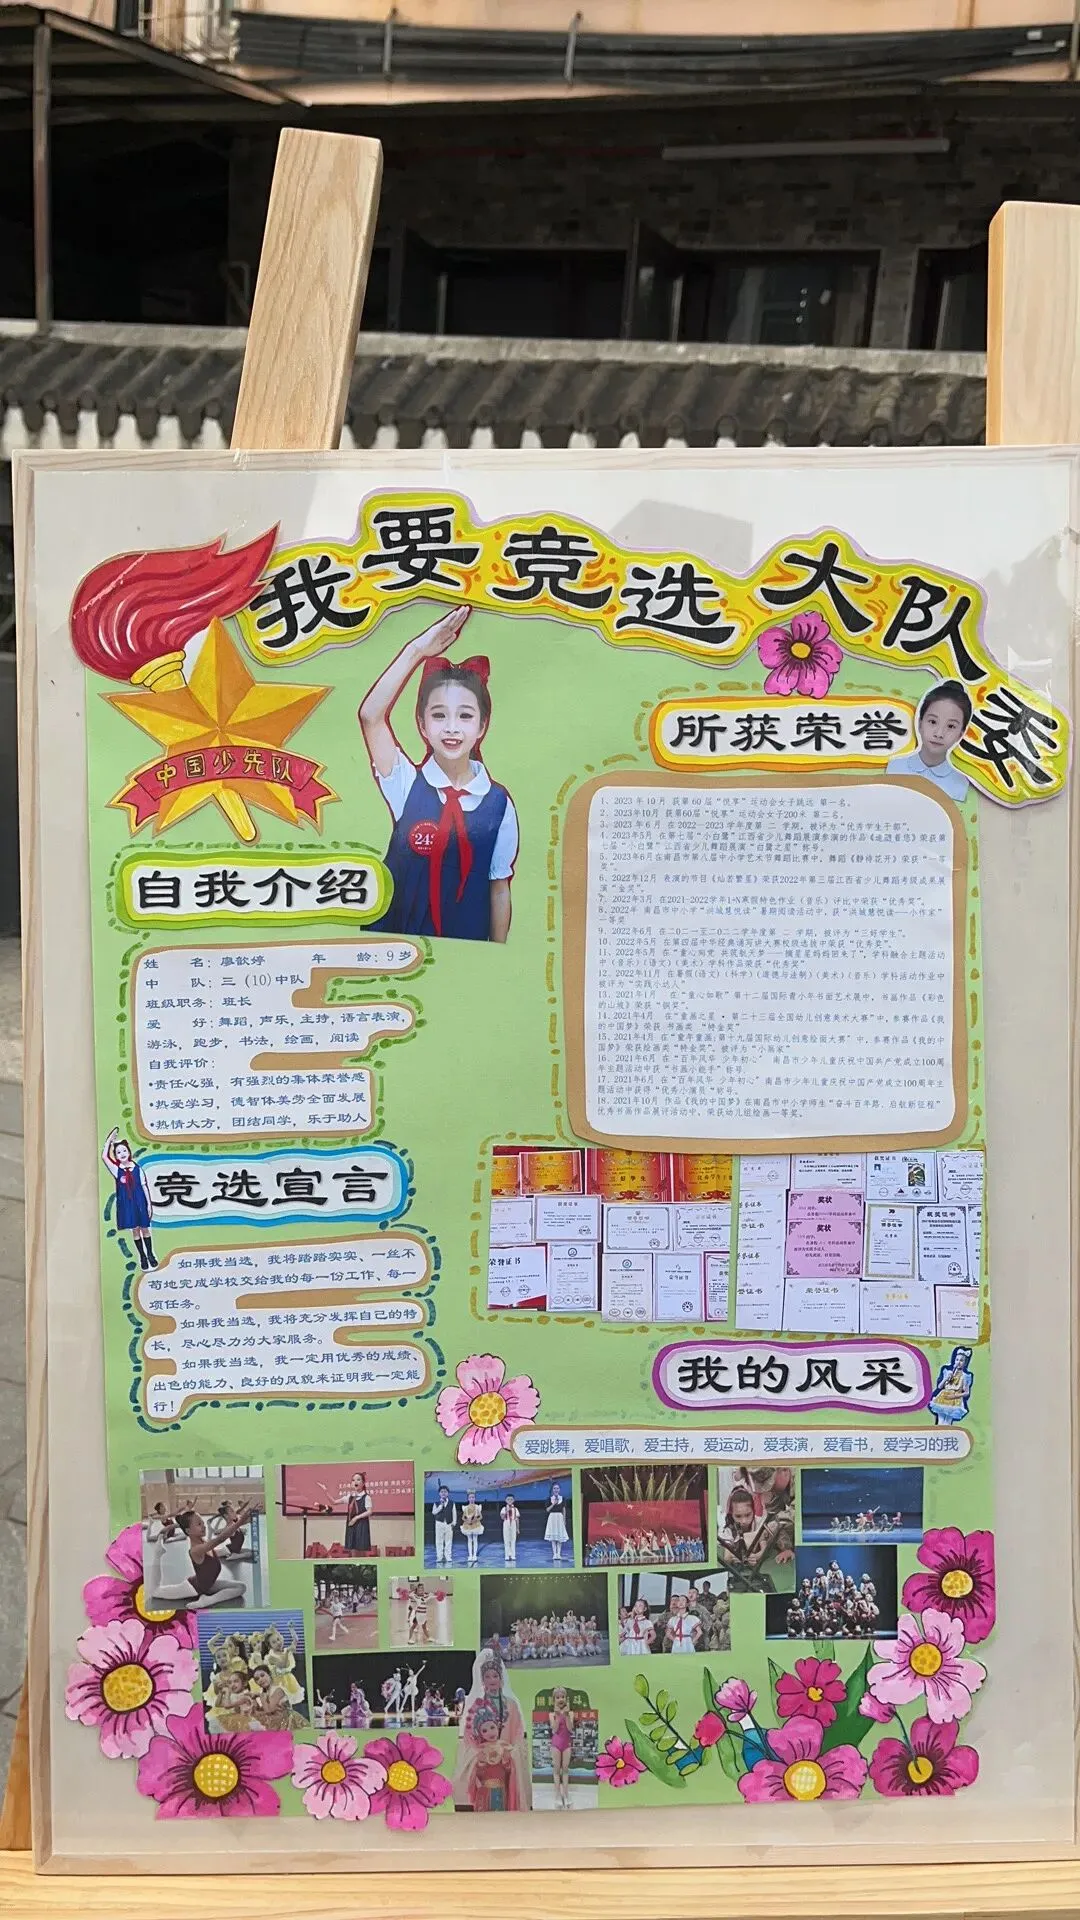 我要竞选大队委
中国少先队
24
所获荣誉
自我介绍
姓 名：廖歆婷 年 龄：9岁
中 队：三 (10)中队
班级职务：班长
爱 好：舞蹈，声乐，主持，语言表演，
游泳，跑步，书法，绘画，阅读
自我评价：
•责任心强，有强烈的集体荣誉感
•热爱学习，德智体美劳全面发展
•热情大方，团结同学，乐于助人
1、2023年10月 获第60届“悦享”运动会女子跳远 第一名。
2、2023年10月 获第60届“悦享”运动会女子200米 第二名。
3、2023年6月 在2022—2023学年度第 二 学期，被评为“优秀学生干部”。
4、2023年5月 在第七届“小白鹭”江西省少儿舞蹈展演参演的作品《追随着您》荣获第
七届“小白鹭”江西省少儿舞蹈展演“白鹭之星”称号。
5、2023年6月在南昌市第八届中小学艺术节舞蹈比赛中，舞蹈《静待花开》荣获“一等
奖”。
6、2022年12月 表演的节目《灿若繁星》荣获2022年第三届江西省少儿舞蹈考级成果展
演“金奖”。
7、2022年3月 在2021-2022学年1+N寒假特色作业（音乐）评比中荣获“优秀奖”。
8、2022年 南昌市中小学“洪城慧悦读”暑期阅读活动中，获“洪城慧悦读——小作家”
一等奖
9、2022年6月 在二〇二一至二〇二二学年度第 二 学期，被评为“三好学生”。
10、2022年5月 在第四届中华经典诵写讲大赛校级选拔中荣获“优秀奖”。
11、2022年5月 在“童心向党 共筑航天梦——摘星星妈妈回来了”，学科融合主题活动
中（音乐）（语文）（美术）学科作品荣获“优秀奖”
12、2022年11月 在暑假(语文)（科学)（道德与法制）（美术）（音乐）学科活动作业中
被评为“实践小达人”
13、2021年1月 在“童心如歌”第十二届国际青少年书画艺术展中，书画作品《彩色
的山坡》荣获“铜奖”。
14、2021年4月 在“童画之星·第二十三届全国幼儿创意美术大赛”中，参赛作品《我
的中国梦》荣获 书画类 “特金奖”
15、2021年4月 在“童年童画：第十九届国际幼儿创意绘画大赛”中，参赛作品《我的中
国梦》荣获绘画类“特金奖”，被评为“小画家”
16、2021年6月 在“百年风华 少年初心” 南昌市少年儿童庆祝中国共产党成立100周
年主题活动中获“书画小能手”称号.
17、2021年6月 在“百年风华 少年初心”南昌市少年儿童庆祝中国共产党成立100周年主
题活动中获得“优秀小演员”称号。
18、2021年10月 作品《我的中国梦》在南昌市中小学师生“奋斗百年路、启航新征程”
优秀书画作品展评活动中，荣获幼儿组绘画一等奖。
竞选宣言
如果我当选，我将踏踏实实、一丝不
苟地完成学校交给我的每一份工作、每一
项任务。
如果我当选，我将充分发挥自己的特
长，尽心尽力为大家服务。
如果我当选，我一定用优秀的成绩、
出色的能力、良好的风貌来证明我一定能
行！
荣誉证书
奖状
奖状
获奖证书
荣誉证书
我的风采
爱跳舞，爱唱歌，爱主持，爱运动，爱表演，爱看书，爱学习的我